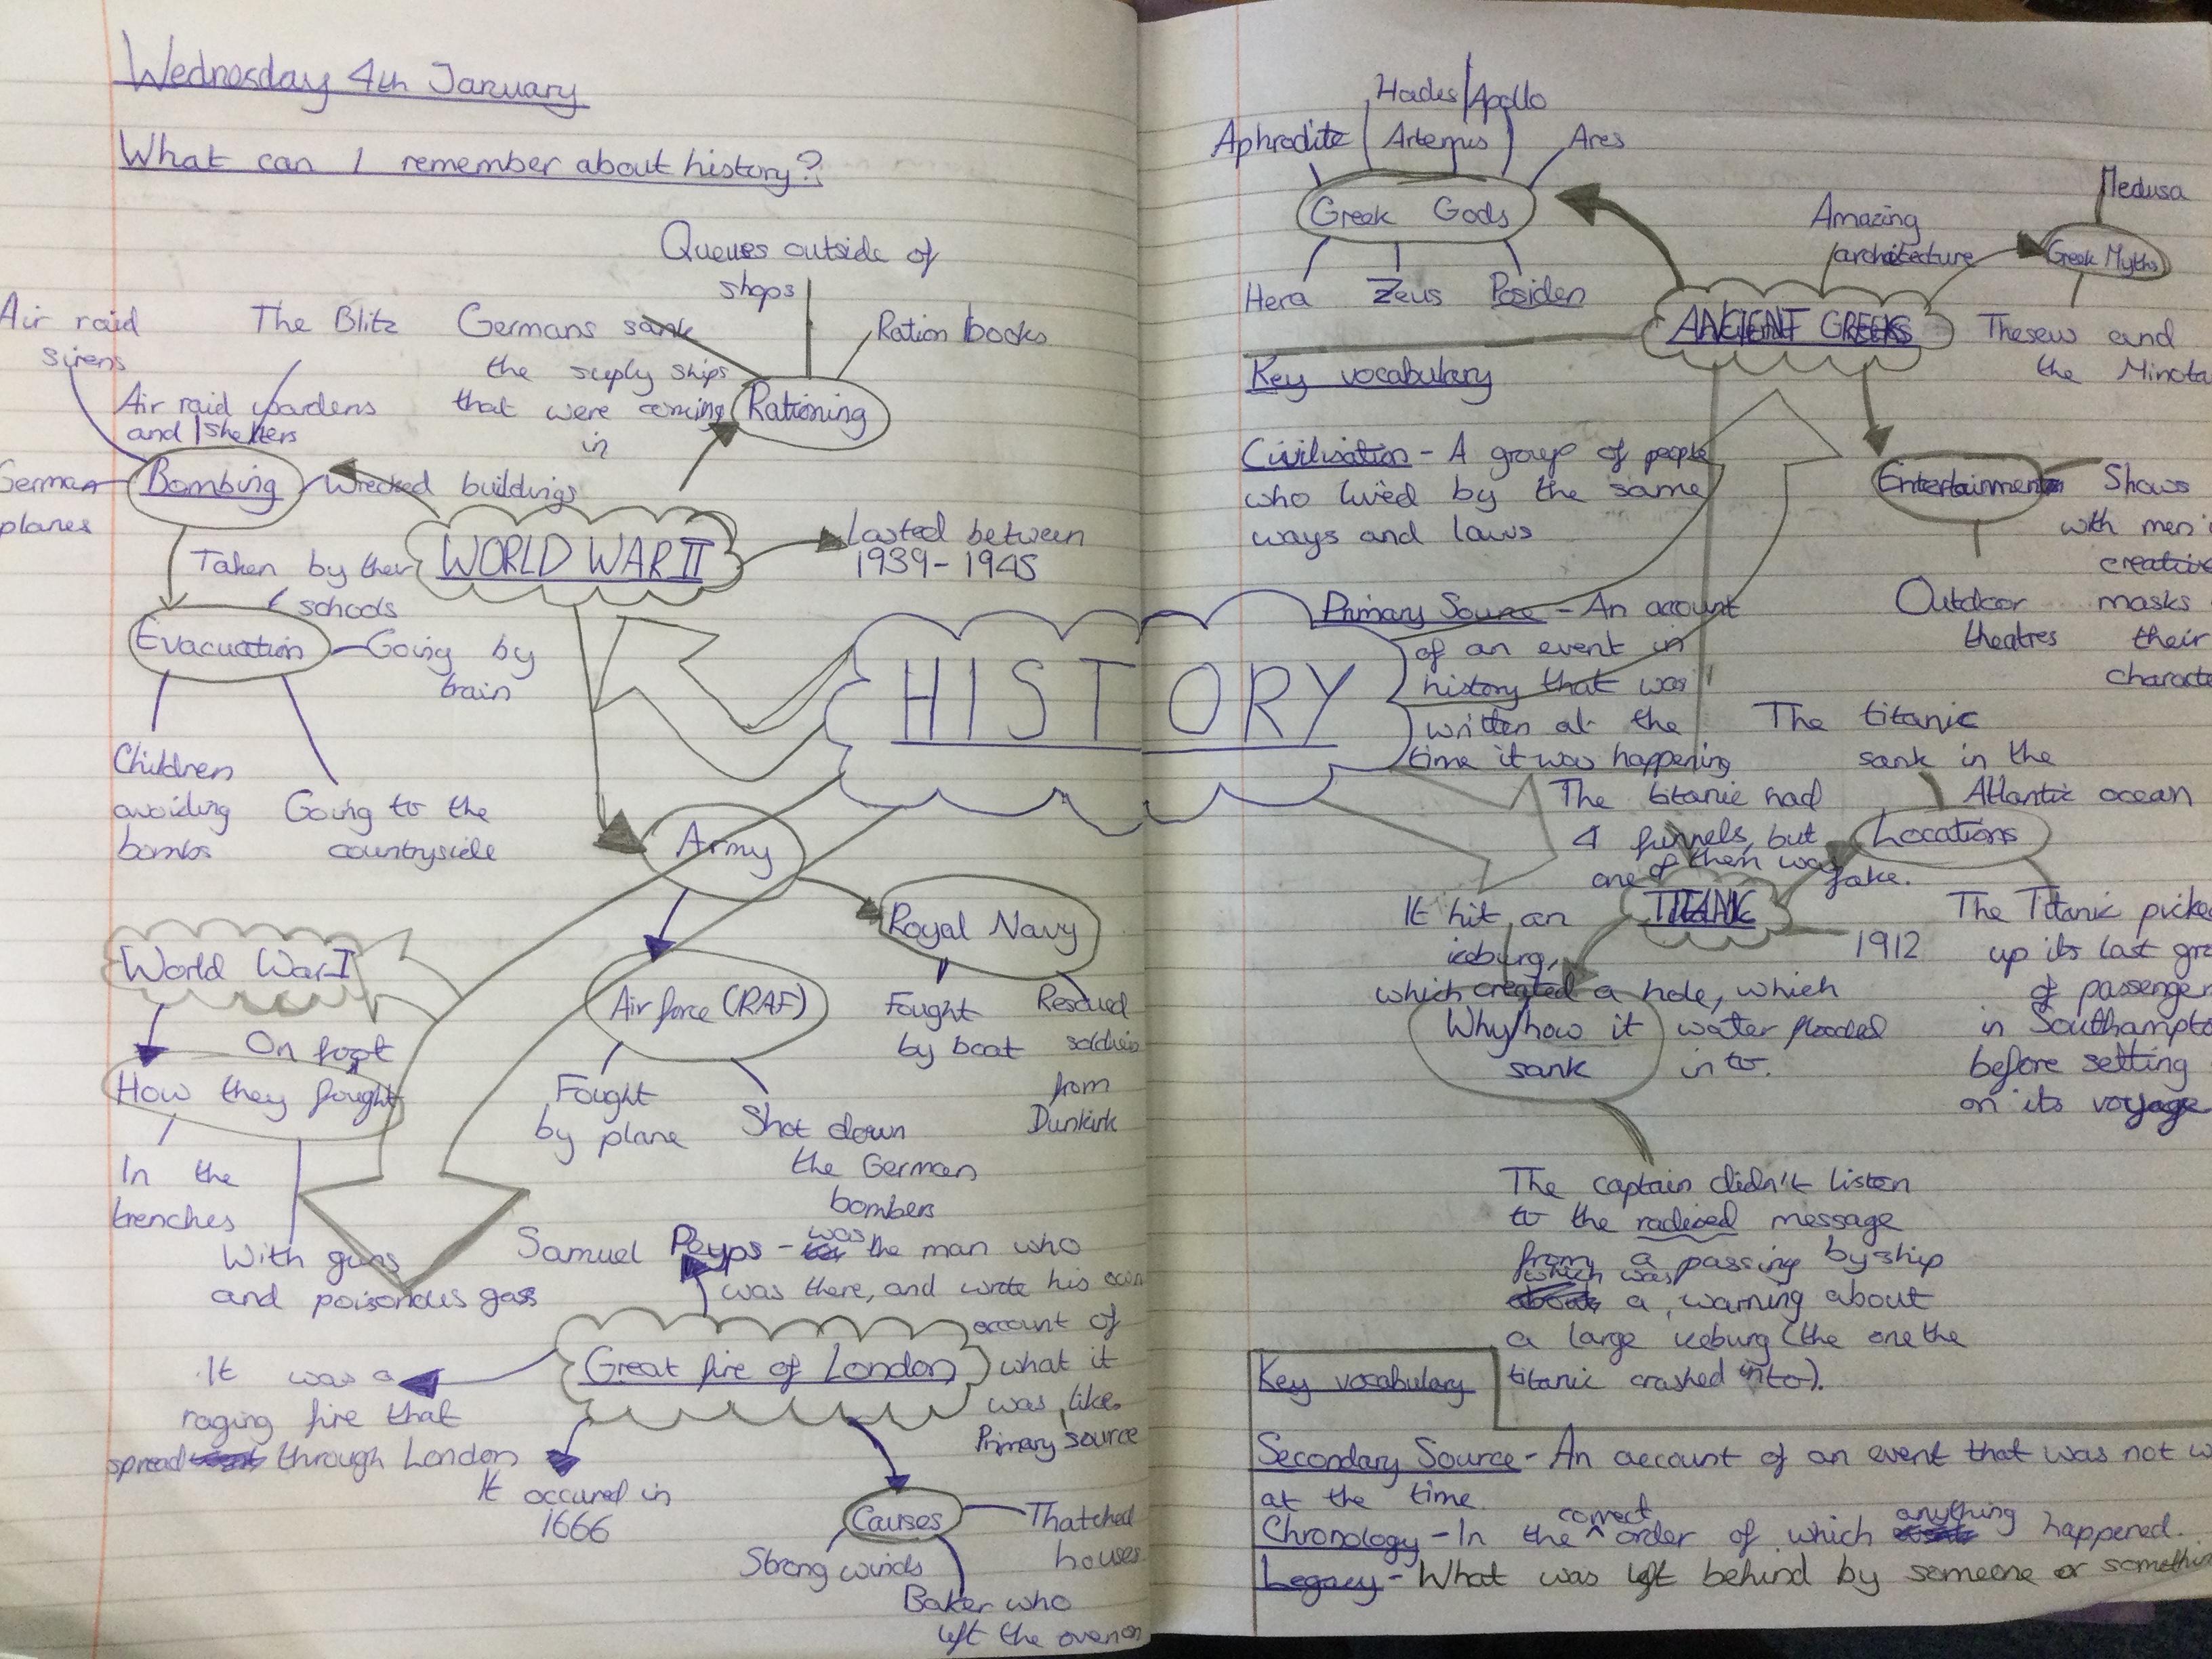 Wednesday 4th January
What can I remember about history?
Queues outside of
shops
Ration books
Germans sank
the suply ships
that were coming
in
Rationing
Air raid
sirens
The Blitz
Air raid wardens
and shelters
German
planes
Bombing
Wrecked buildings
WORLD WAR II
Lasted between
1939-1945
Taken by their
schools
Evacuation
Going by
train
Children
avoiding
bombs
Going to the
countryside
HISTORY
Army
Royal Navy
Fought
by boat
Rescued
soldiers
from
Dunkirk
Air force (RAF)
Fought
by plane
Shot down
the German
bombers
World War I
On foot
How they fought
In the
trenches
With guns
and poisonous gass
Samuel Peyps - was the man who
was there, and wrote his own
account of
what it
was like.
Primary source
Great fire of London
It was a
raging fire that
spread through London
It occured in
1666
Causes
Thatched
houses
Strong winds
Baker who
left the oven on
Hades Apollo
Aphrodite Artemus Ares
Greek Gods
Hera Zeus Posiden
Amazing
architecture
Medusa
Greek Myths
ANCIENT GREEKS
Theseus and
the Minota
Key vocabulary
Civilisation - A group of people
who lived by the same
ways and laws
Entertainment
Shows
with men i
creative
masks
their
characte
Outdoor
theatres
Primary Source - An account
of an event in
history that was
written at the
time it was happening
The titanic
sank in the
Atlantic ocean
The titanic had
4 funnels, but
one of them was
fake.
Locations
TITANIC
1912
The Titanic picke
up its last gro
of passenger
in Southampto
before setting
on its voyage
It hit an
iceburg,
which created a hole, which
water flooded
in to.
Why/how it
sank
The captain didn't listen
to the radioed message
from a passing by ship
which was
a warning about
a large iceburg (the one the
titanic crashed into).
Key vocabulary
Secondary Source - An account of an event that was not w
at the time.
Chronology - In the correct order of which anything happened.
Legacy - What was left behind by someone or somethin